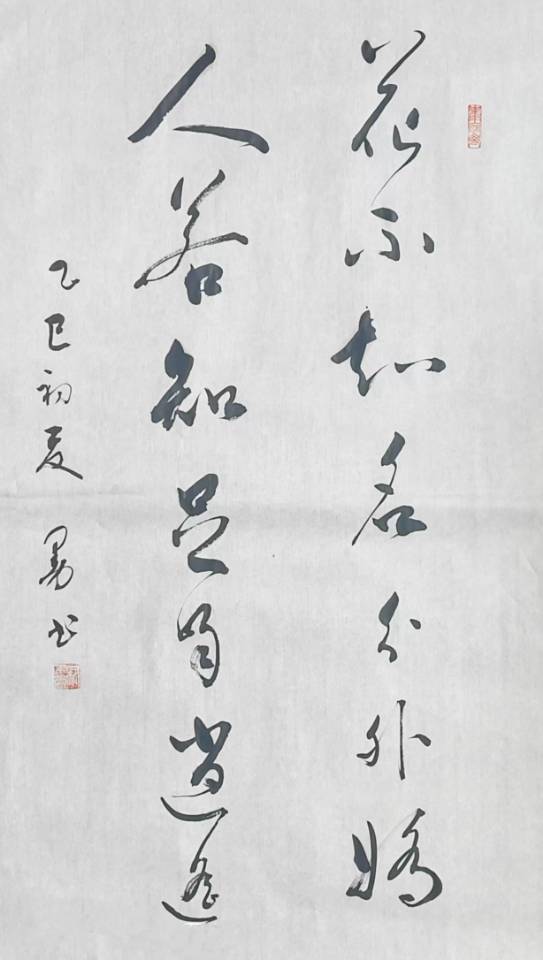 花不知名分外娇
人若知足自逍遥
乙巳初夏 书